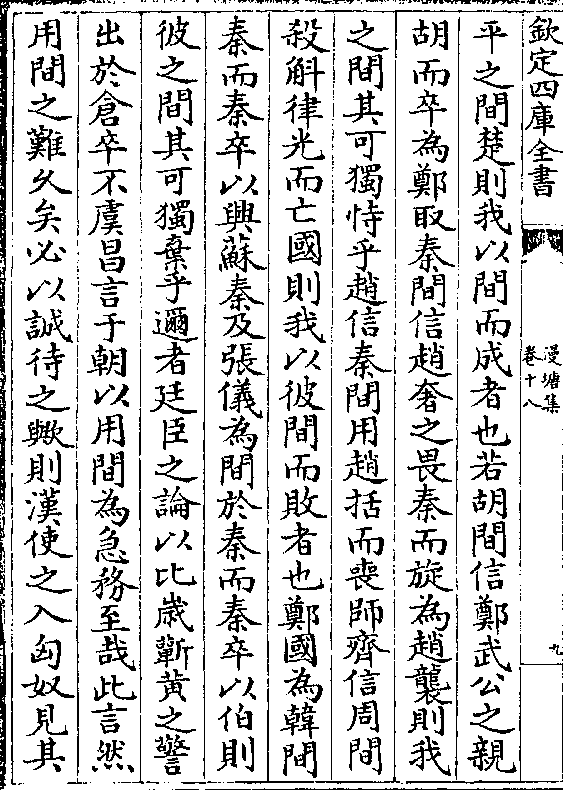 欽定四庫全書
漫塘集
卷十八
九
平之間楚則我以間而成者也若胡間信鄭武公之親
胡而卒為鄭取秦間信趙奢之畏秦而旋為趙襲則我
之間其可獨恃乎趙信秦間用趙括而喪師齊信周間
殺斛律光而亡國則我以彼間而敗者也鄭國為韓間
秦而秦卒以興蘇秦及張儀為間於秦而秦卒以伯則
彼之間其可獨棄乎邇者廷臣之論以比歲蘄黄之警
出於倉卒不虞昌言于朝以用間為急務至哉此言然
用間之難久矣必以誠待之歟則漢使之入匈奴見其